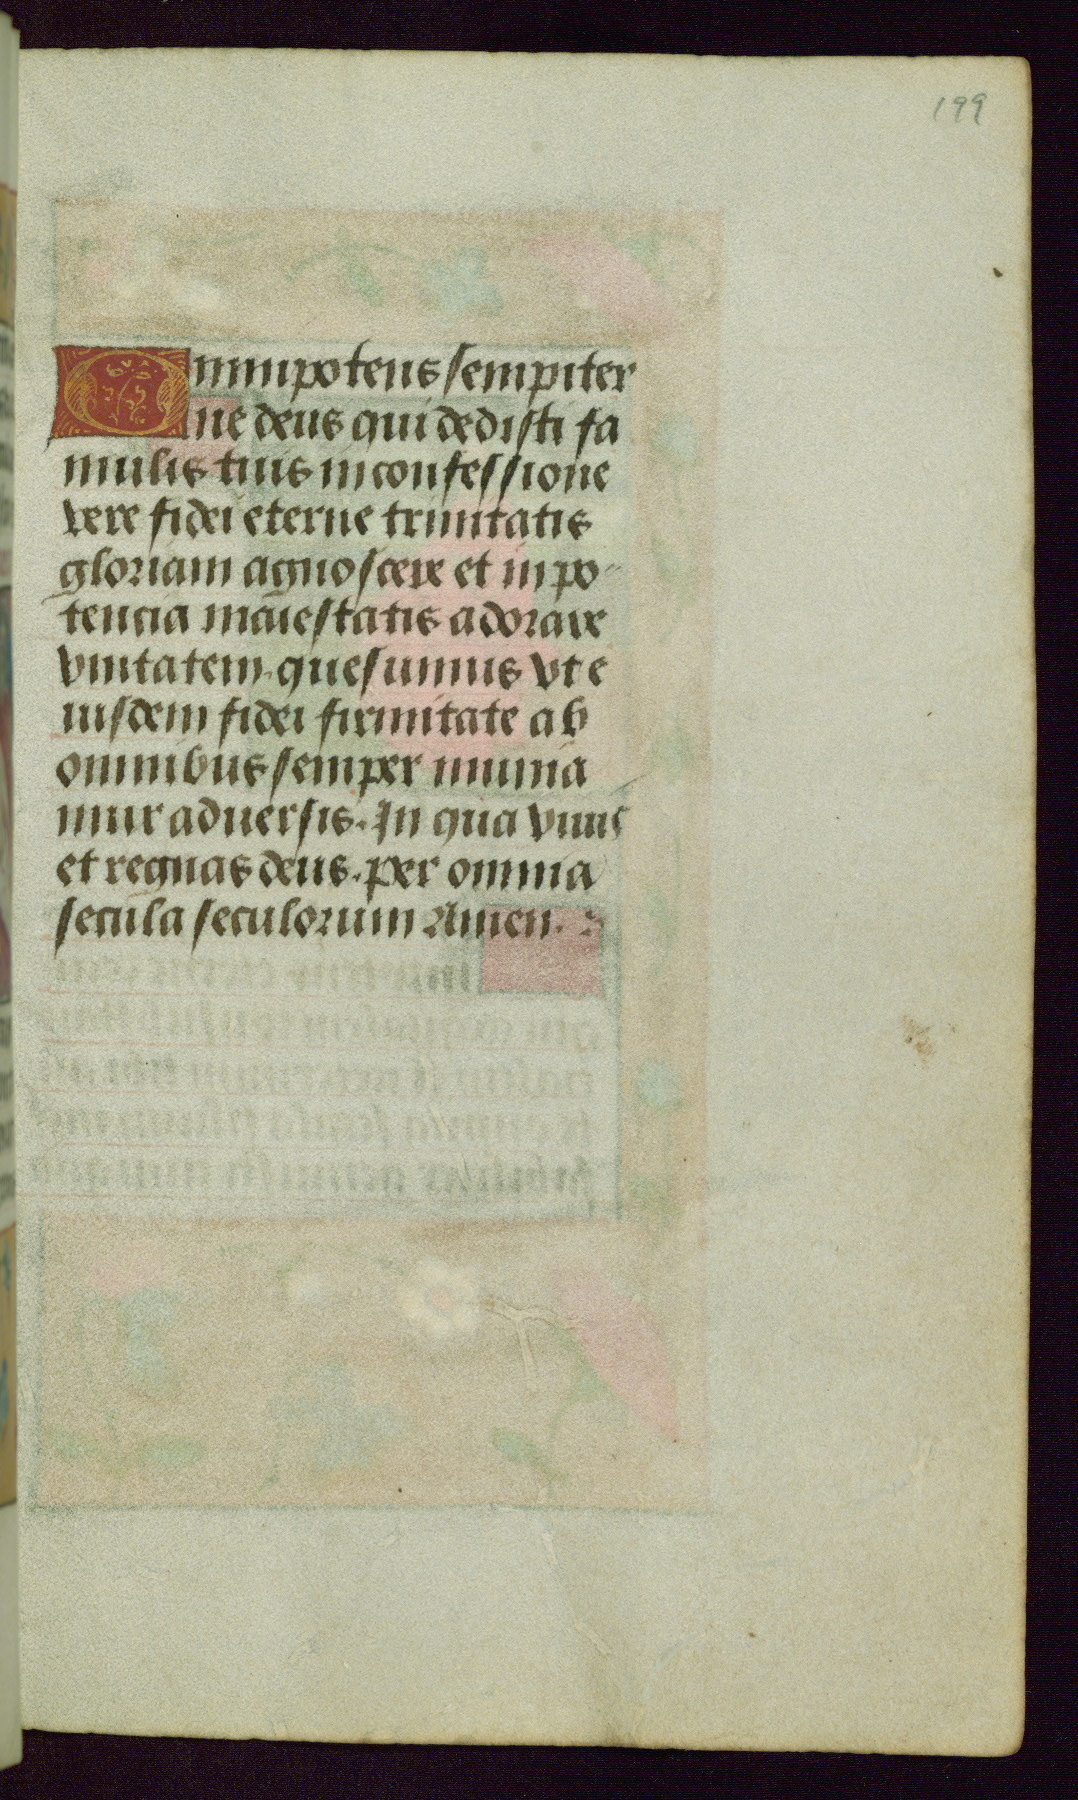 199
Omnipotens sempiter
ne deus qui dedisti fa
mulis tuis in confessione
vere fidei eterne trinitatis
gloriam agnoscere et in po-
tencia maiestatis adorare
vnitatem. quesumus vt e
iusdem fidei firmitate ab
omnibus semper munia
mur aduersis. In qua viuis
et regnas deus. per omnia
secula seculorum Amen.